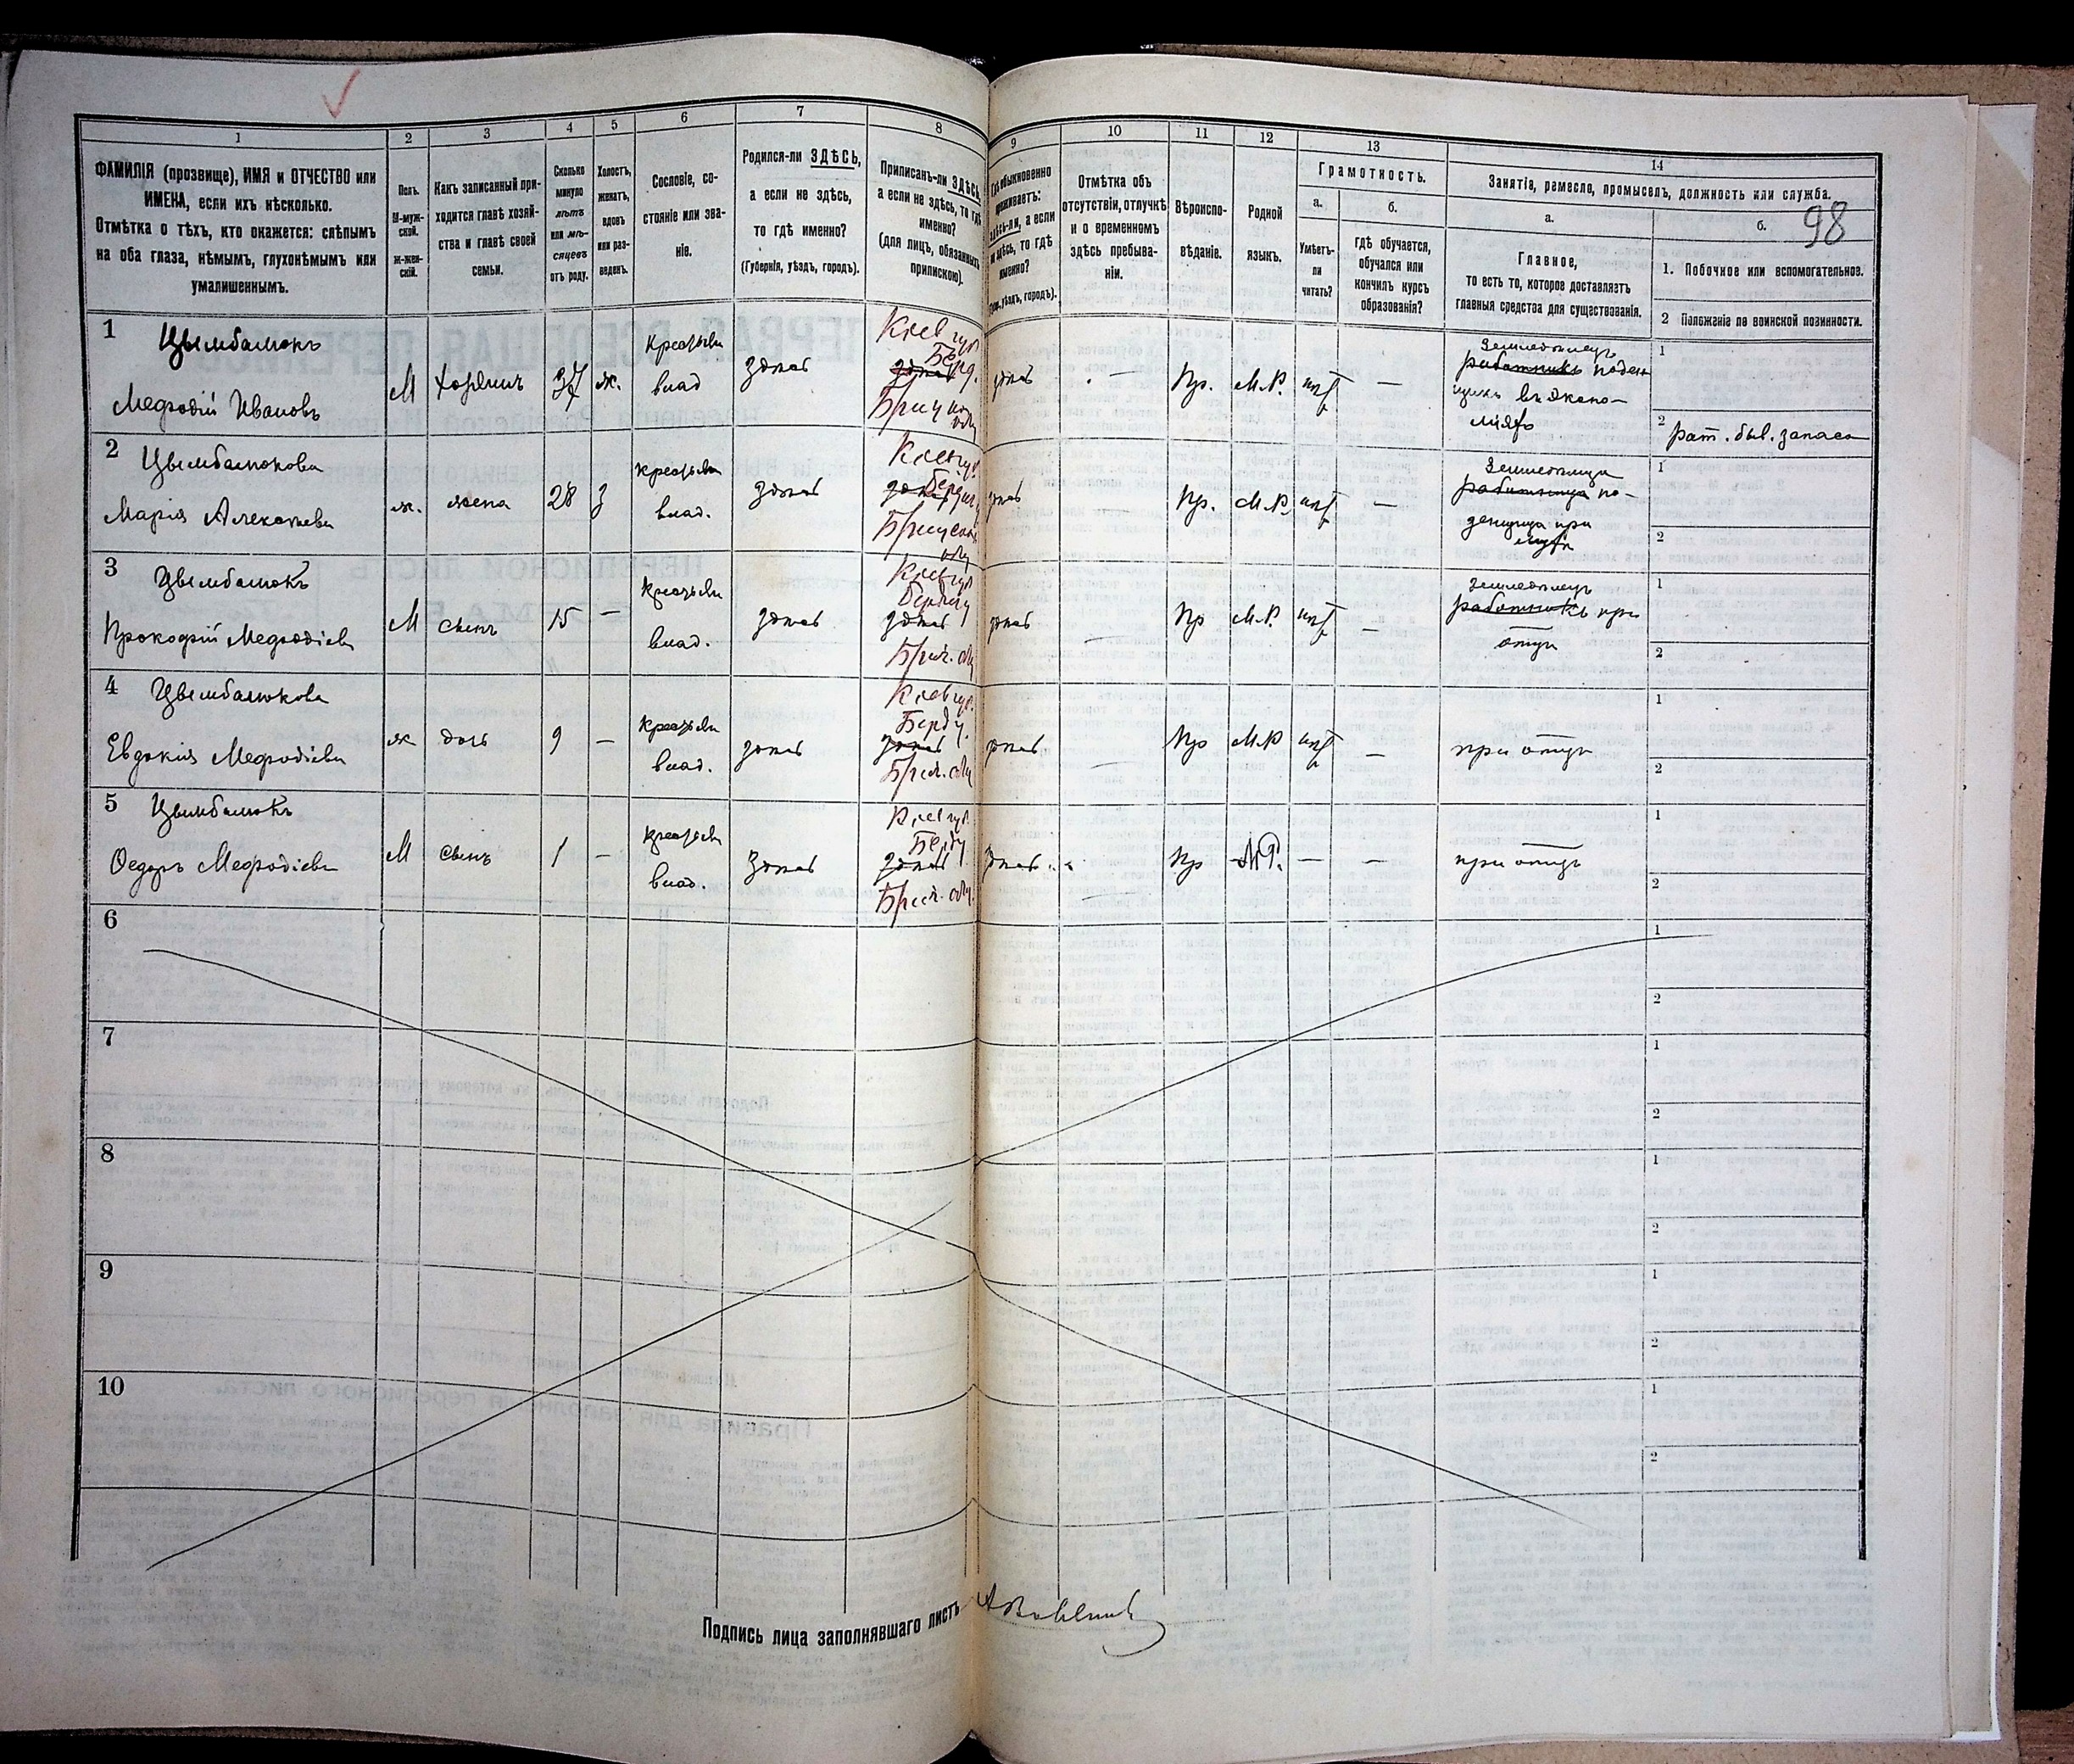 98
1
2
3
4
5
6
7
8
9
10
11
12
13
14
ФАМИЛІЯ (прозвище), ИМЯ и ОТЧЕСТВО или
ИМЕНА, если ихъ нѣсколько.
Отмѣтка о тѣхъ, кто окажется: слѣпымъ
на оба глаза, нѣмымъ, глухонѣмымъ или
умалишеннымъ.
Полъ.
М-муж-
ской.
Ж-жен-
скій.
Какъ записанный при-
ходится главѣ хозяй-
ства и главѣ своей
семьи.
Сколько
минуло
лѣтъ
или мѣ-
сяцевъ
отъ роду.
Холостъ,
женатъ,
вдовъ
или раз-
веденъ.
Сословіе, со-
стояніе или зва-
ніе.
Родился-ли ЗДѢСЬ,
а если не здѣсь,
то гдѣ именно?
(Губернія, уѣздъ, городъ).
Приписанъ-ли ЗДѢСЬ,
а если не здѣсь, то гдѣ
именно?
(для лицъ, обязанныхъ
припискою).
Гдѣ обыкновенно
проживаетъ:
здѣсь-ли, а если
не здѣсь, то гдѣ
именно?
(Губ., уѣздъ, городъ).
Отмѣтка объ
отсутствіи, отлучкѣ
и о временномъ
здѣсь пребыва-
ніи.
Вѣроиспо-
вѣданіе.
Родной
языкъ.
Грамотность.
а.
Умѣетъ-
ли
читать?
б.
гдѣ обучается,
обучался или
кончилъ курсъ
образованія?
Занятіе, ремесло, промыселъ, должность или служба.
а.
Главное,
то есть то, которое доставляетъ
главныя средства для существованія.
б.
1. Побочное или вспомогательное.
2 Положеніе по воинской повинности.
1
Цымбалюкъ
Мефодій Ивановъ
М
хозяинъ
37
ж.
крестьян
влад
здѣсь
Кіев губ
Берд.
здѣсь
здѣсь
—
Пр.
М.Р.
нѣт
—
Земледѣлецъ
работникъ поден
щикъ въ эконо-
міях
1
2 рат. быв. запаса
2
Цымбалюкова
Марія Алексѣева
ж.
жена
28
З
крестьян
влад.
здѣсь
Кіев губ
здѣсь
здѣсь
Пр.
М.Р.
нѣт
—
Земледѣлица
работница по-
денщица при
мужѣ
1
2
3
Цымбалюкъ
Прокофій Мефодіевъ
М
сынъ
15
—
крестьян
влад.
здѣсь
Кіев губ
Бердич
здѣсь
здѣсь
—
Пр
М.Р.
нѣт
—
Земледѣлецъ
работникъ при
отцѣ
1
2
4
Цымбалюкова
Евдокія Мефодіева
ж
дочь
9
—
крестьян
влад.
здѣсь
Кіев губ.
Берд у.
здѣсь
здѣсь
—
Пр
М.Р
нѣт
—
при отцѣ
1
2
5
Цымбалюкъ
Ѳедоръ Мефодіевъ
М
сынъ
1
—
крестьян
влад.
здѣсь
Кіев губ.
Берд у
здѣсь
здѣсь
—
Пр
М.Р.
—
—
при отцѣ
1
2
6
1
2
7
1
2
8
1
2
9
1
2
10
1
2
Подпись лица заполнявшаго листъ